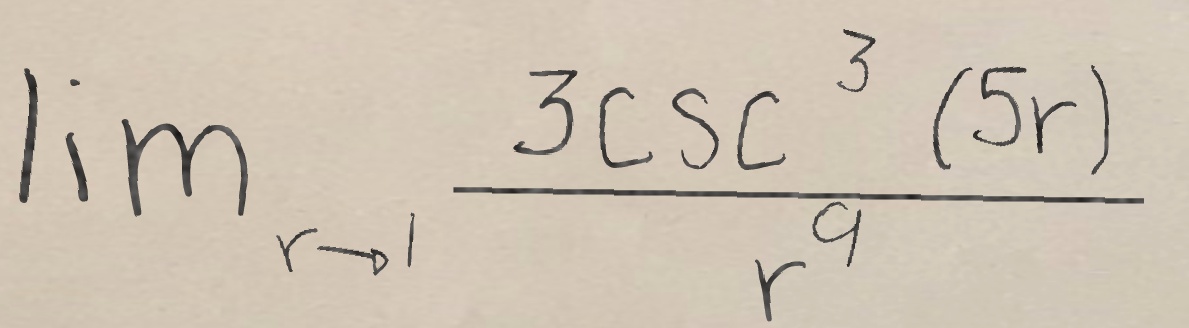 lim r→1 3csc^3 (5r) / r^9